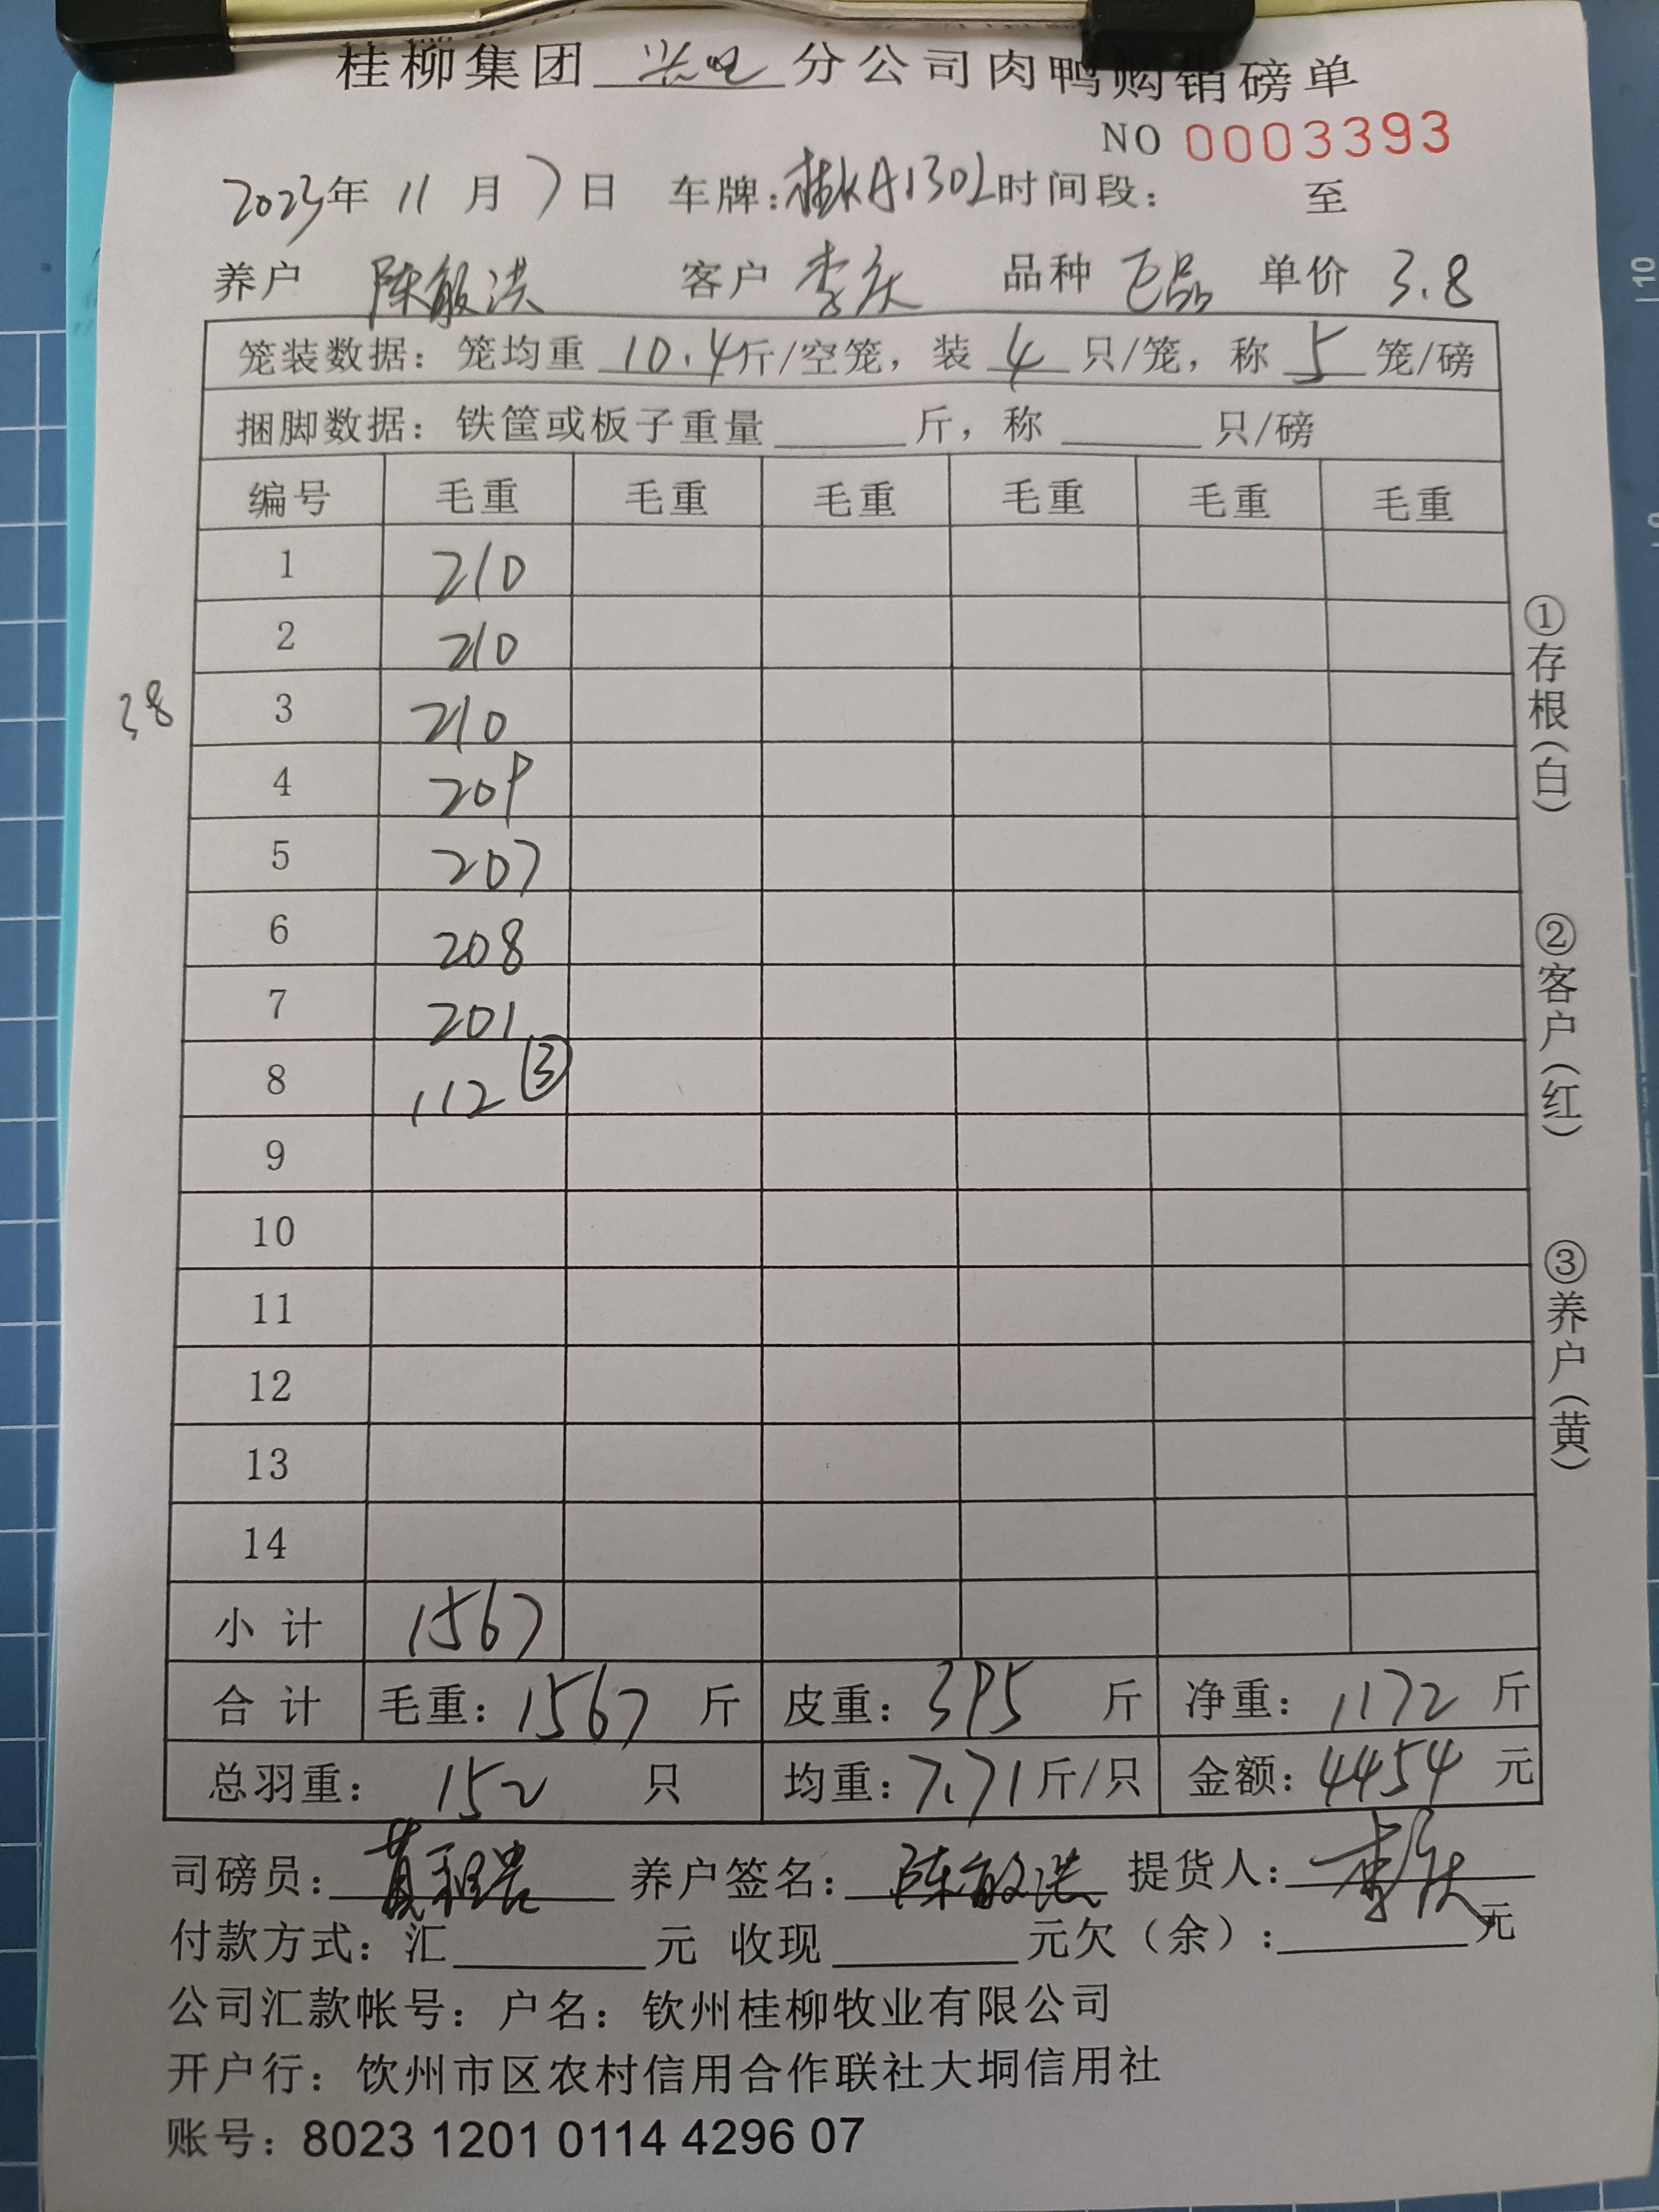 桂柳集团 分公司肉鸭购销磅单
NO 0003393
2023年 11 月 7 日 车牌:桂KA130L时间段: 至
养户 陈敏洪 客户 李庆 品种 巴品 单价 3.8
笼装数据: 笼均重 10.4斤/空笼, 装 4 只/笼, 称 5 笼/磅
捆脚数据: 铁筐或板子重量 斤, 称 只/磅
编号 毛重 毛重 毛重 毛重 毛重 毛重
1 210
2 210
38 3 210
4 209
5 207
6 208
7 201
8 112 ③
9
10
11
12
13
14
小 计 1567
合 计 毛重: 1567 斤 皮重: 395 斤 净重: 1172 斤
总羽重: 152 只 均重: 7.71斤/只 金额: 4454 元
司磅员: 养户签名: 陈敏洪 提货人: 李庆
付款方式: 汇 元 收现 元欠(余): 元
公司汇款帐号: 户名: 钦州桂柳牧业有限公司
开户行: 饮州市区农村信用合作联社大垌信用社
账号: 8023 1201 0114 4296 07
①存根(白)
②客户(红)
③养户(黄)
10